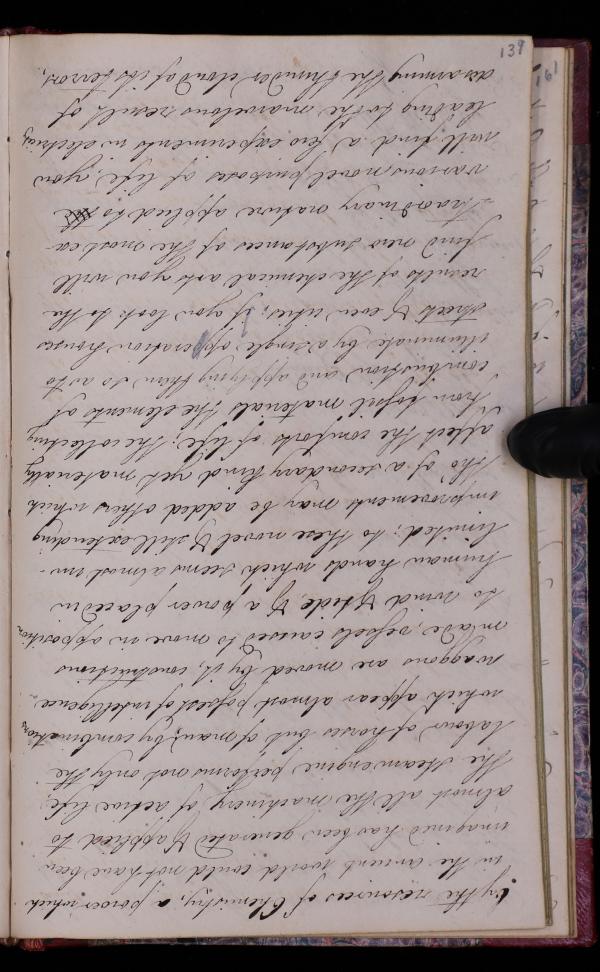 by the resources of Chemistry, a power which
in the antient world could not have been
imagined has been generated & applied to
almost all the machinery of active life
the steam engine performs not only the
labour of horses but of man, by combinations
which appear almost possest of intelligence
waggons are moved by it, constructions
made, vessels caused to move in opposition
to wind & tide & a power placed in
human hands which seems almost un-
limited; to these novel & still extending
improvements may be added others which
tho' of a secondary kind yet materially
affect the comforts of life; the collecting
from fossil materials the elements of
combustion and applying them so as to
illuminate by a single operation houses
streets & even cities; if you look to the
results of the chemical arts you will
find new substances of the most ex-
traordinary nature applied to
various novel purposes of life, you
will find a few experiments in electricity
leading to the marvelous result of
disarming the thunder cloud of its terrors,
139
161